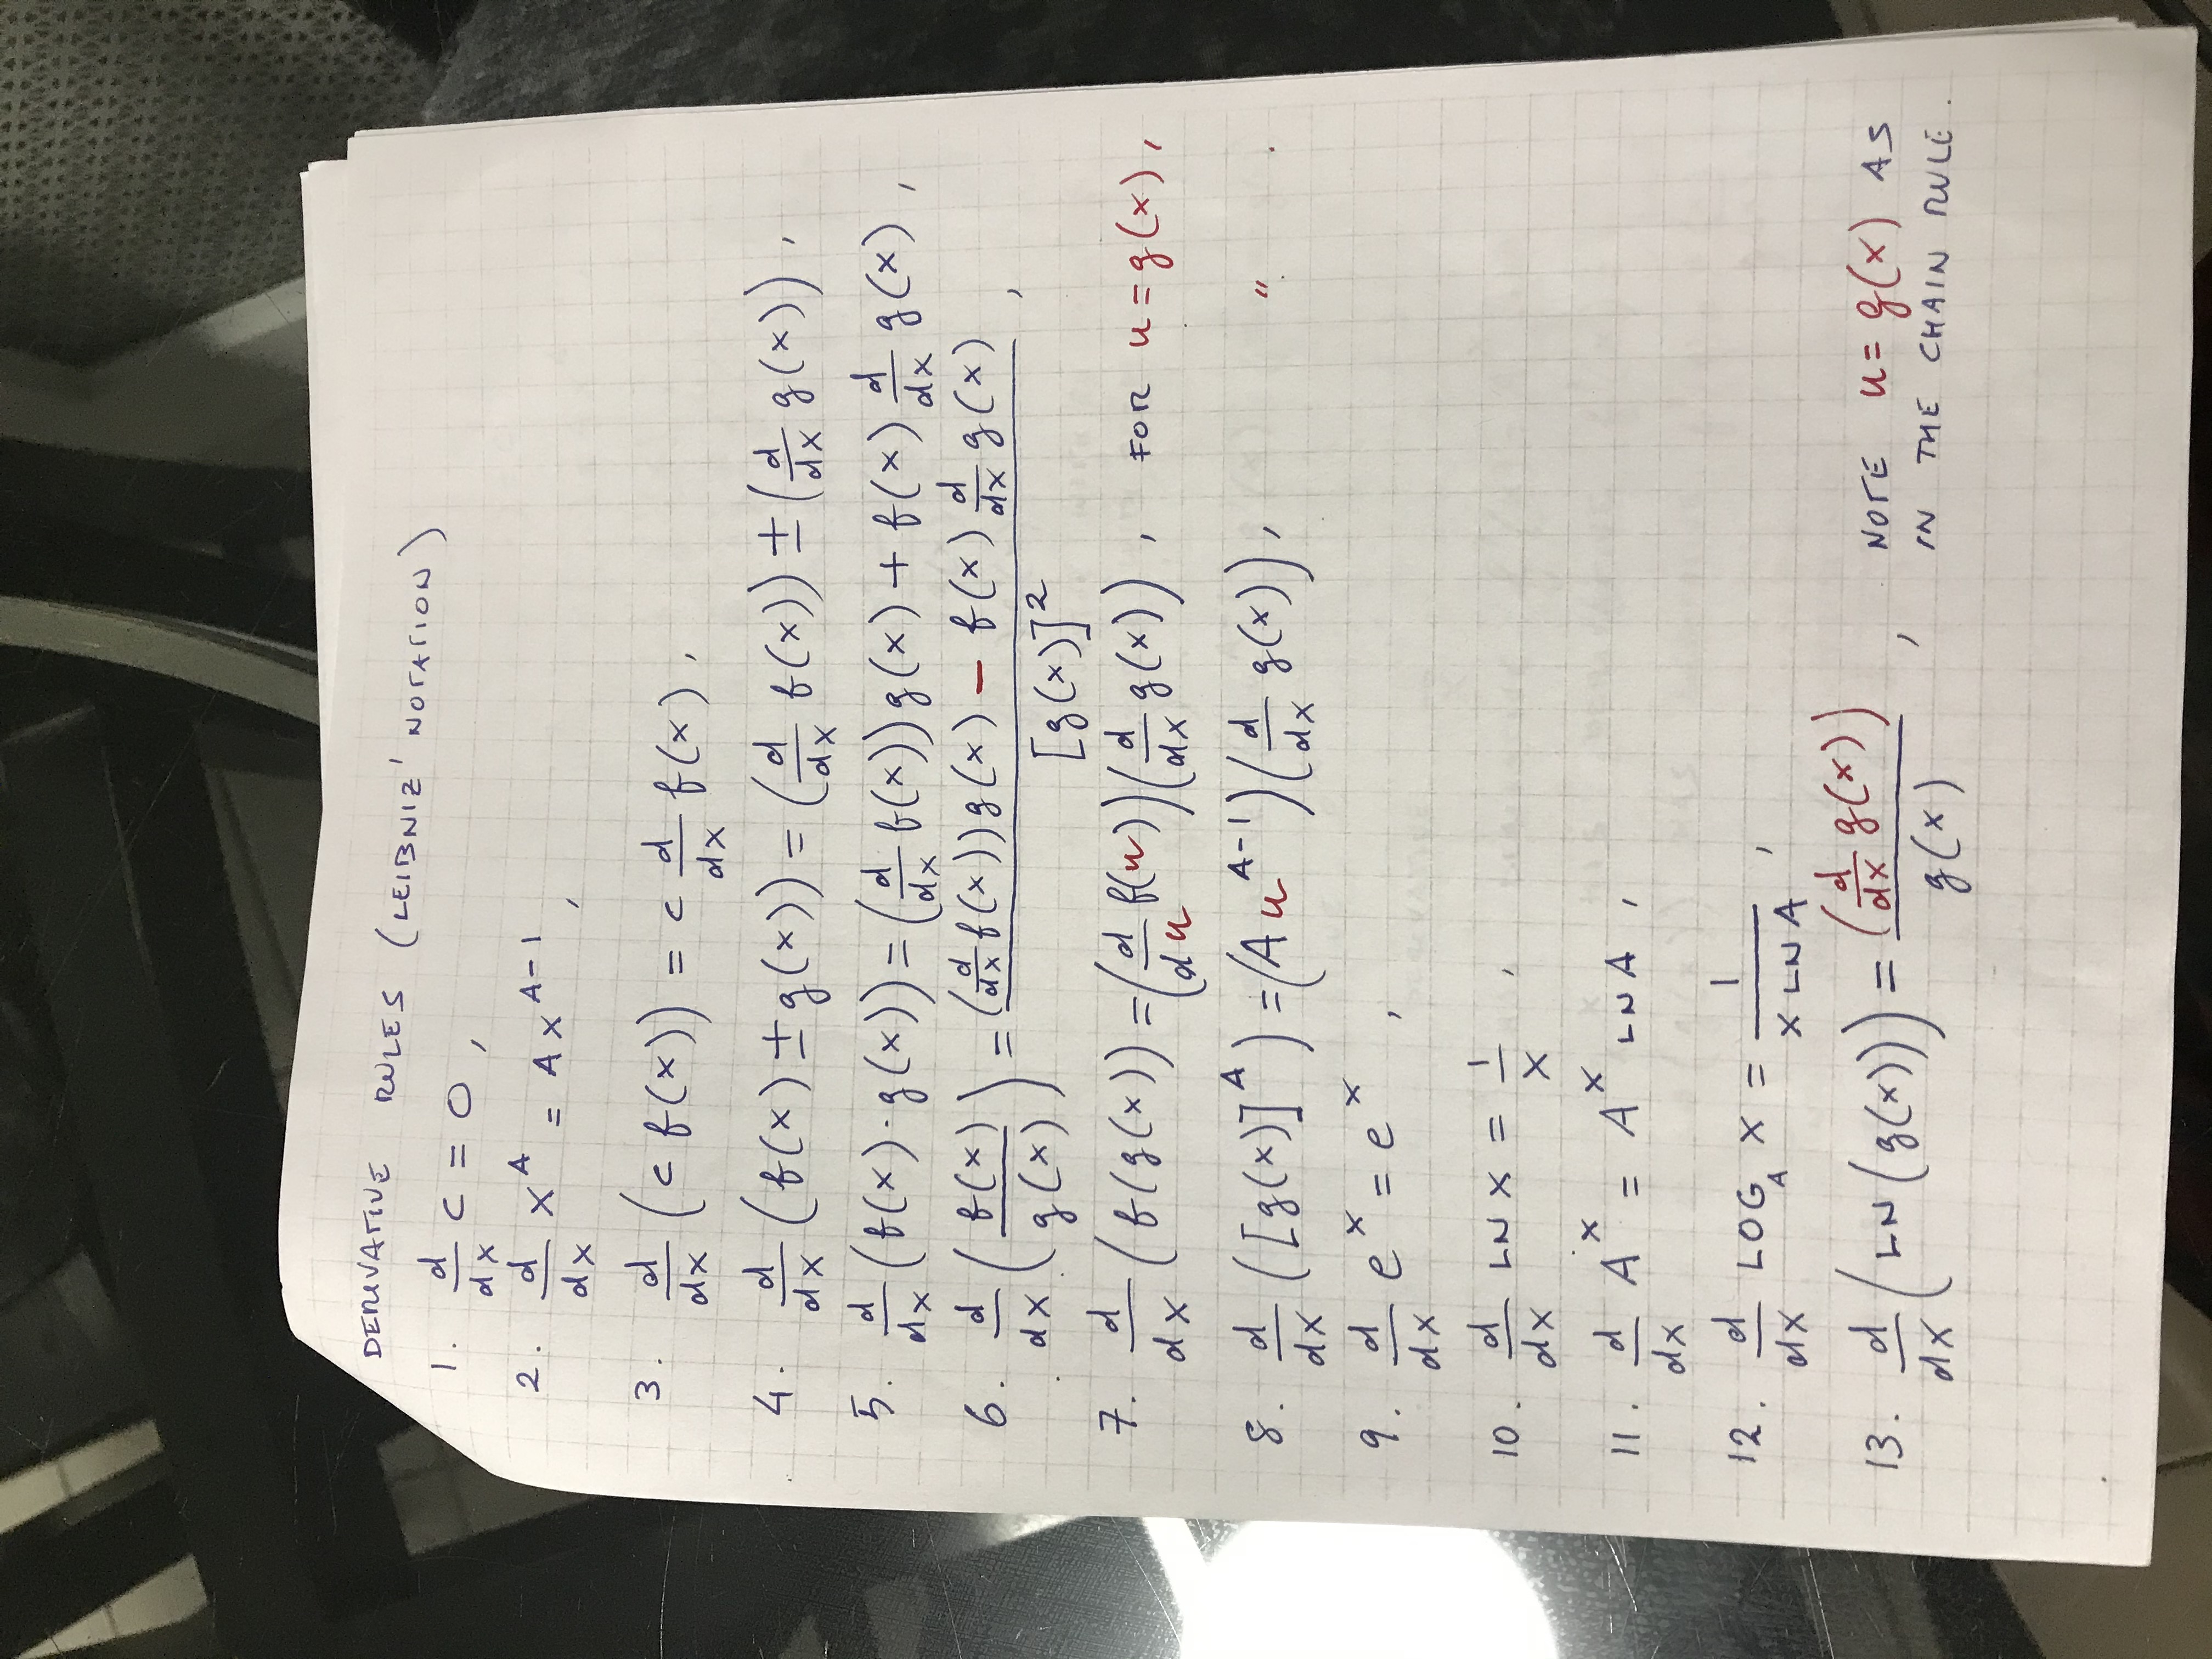 DERIVATIVE RULES (LEIBNIZ' NOTATION)
1. d/dx c = 0,
2. d/dx x^A = A x^(A-1),
3. d/dx (c f(x)) = c d/dx f(x),
4. d/dx (f(x) ± g(x)) = (d/dx f(x)) ± (d/dx g(x)),
5. d/dx (f(x) · g(x)) = (d/dx f(x)) g(x) + f(x) d/dx g(x),
6. d/dx (f(x)/g(x)) = ((d/dx f(x)) g(x) - f(x) d/dx g(x))/[g(x)]^2,
7. d/dx (f(g(x))) = (d/du f(u)) (d/dx g(x)), FOR u = g(x),
8. d/dx ([g(x)]^A) = (A u^(A-1)) (d/dx g(x)), " .
9. d/dx e^x = e^x,
10. d/dx LN x = 1/x,
11. d/dx A^x = A^x LN A,
12. d/dx LOG_A x = 1/(x LN A),
13. d/dx (LN (g(x))) = (d/dx g(x))/g(x), NOTE u = g(x) AS
IN THE CHAIN RULE.